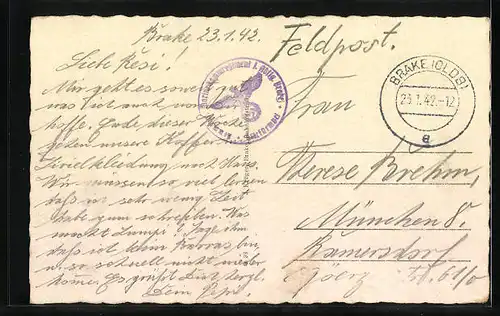 Brake 23.1.42.
Liebe Resi!
Mir geht es soweit gut
was ich auch von
hoffe. Ende dieser Woche
gehen unsere Koffer mit
Zivilkleidung nach Haus.
Wir müssen so viel lernen
daß wir sehr wenig Zeit
habe zum schreiben. Was
macht Lumpi? Sage ihm
daß ich beim Barras bin
u. so schnell nicht wieder
kome. Es grüßt Dich herzl.
Dein Pepi.
Feldpost.
BRAKE (OLDB)
23.1.42.-12
a
Frau
Therese Brehm,
München 8.
Ramersdorf
61/0